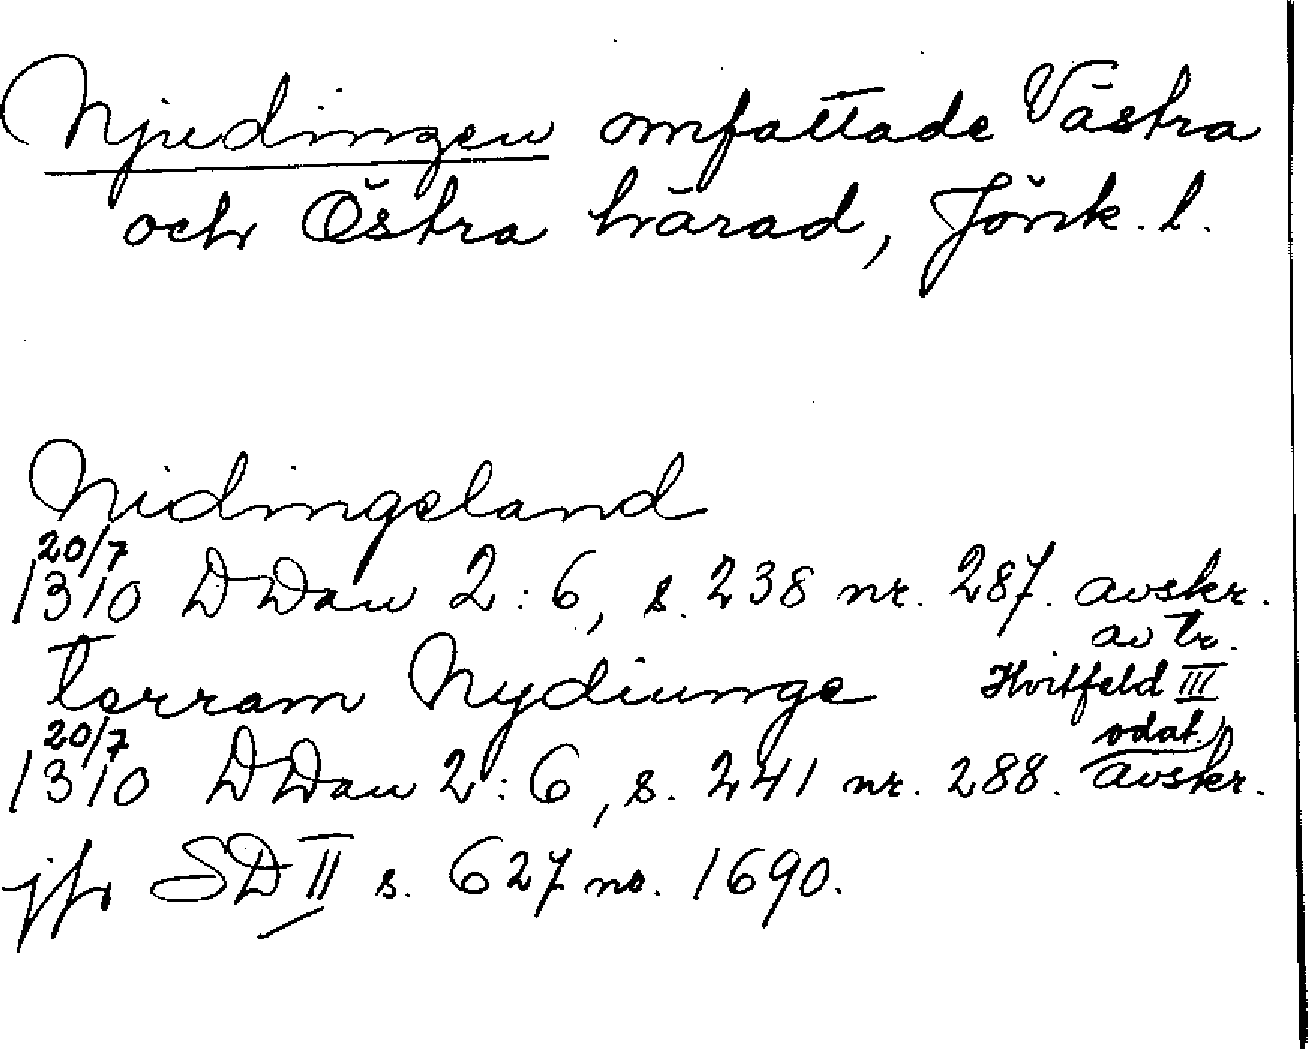 Njudingen omfattade Västra
och Östra härad, Jönk. l.
Nidingeland
20/7
1310 DDan 2:6, s. 238 nr. 287. avskr.
av tr.
Hvitfeld III
terram Nydiunge
20/7
odat.
1310 DDan 2:6, s. 241 nr. 288. avskr.
jfr SD II s. 627 no. 1690.